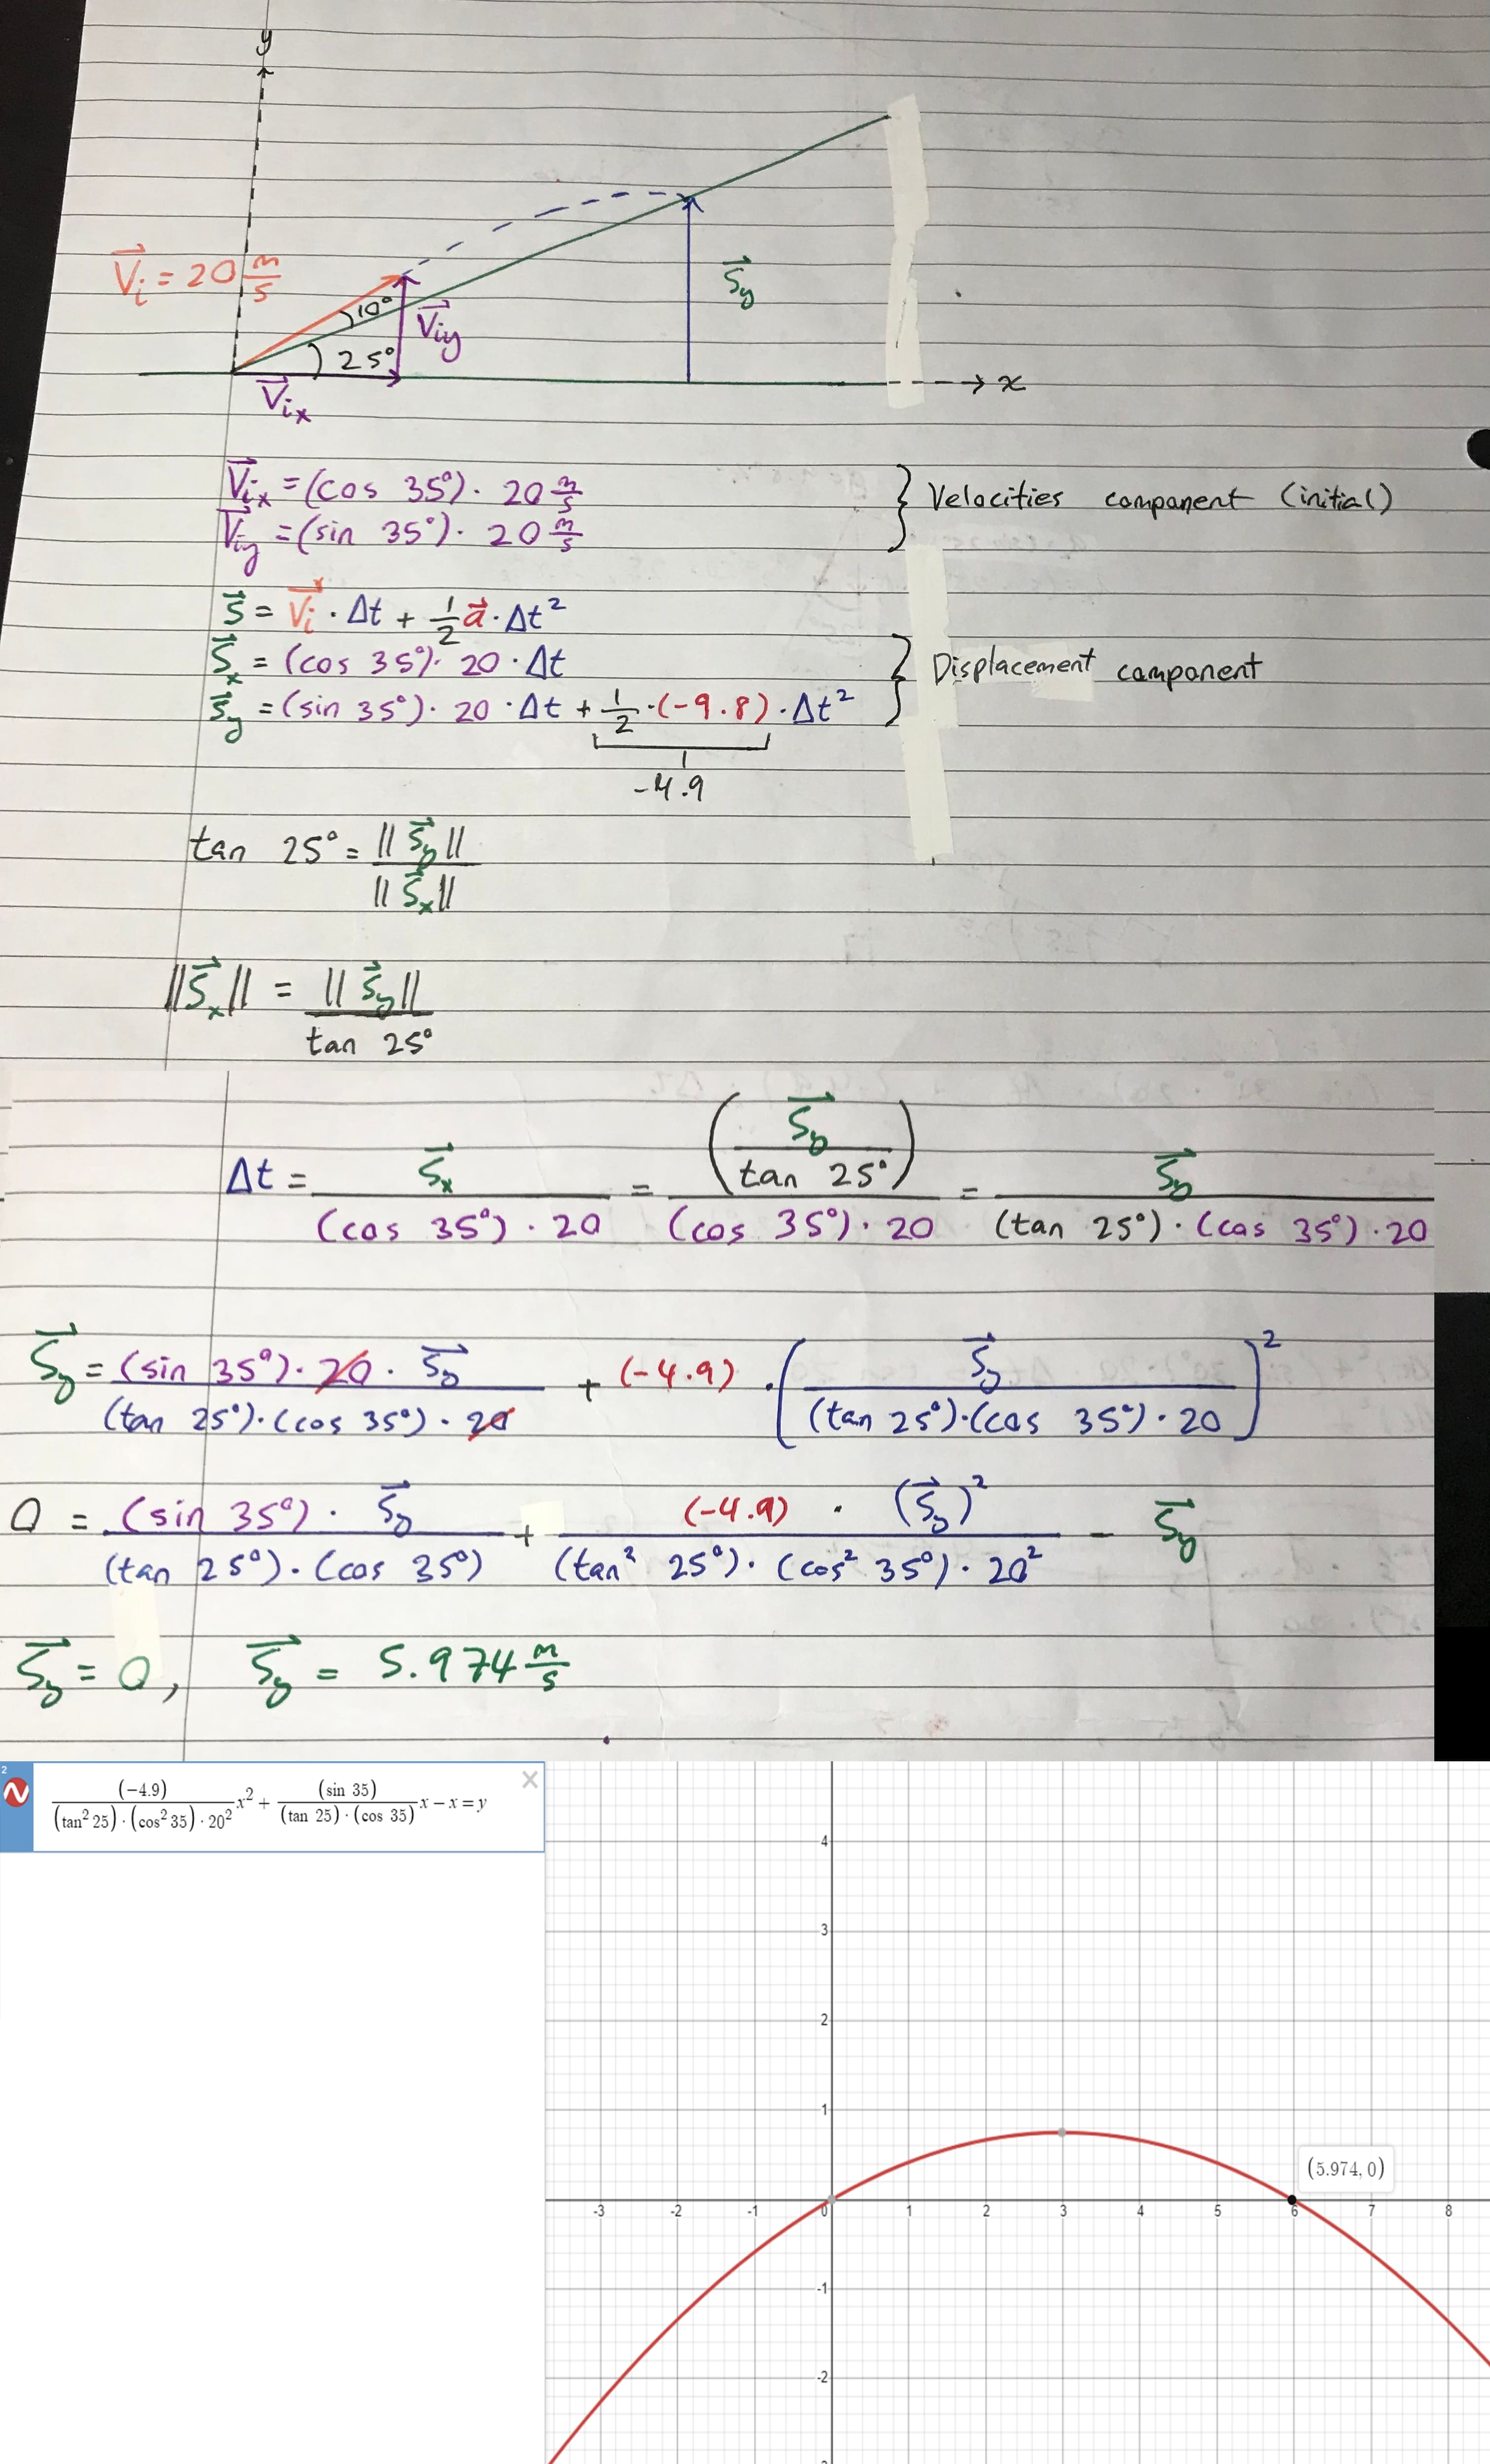 y
V⃗i = 20 m/s
10°
V⃗iy
25°
V⃗ix
S⃗y
x
V⃗ix = (cos 35°) · 20 m/s
V⃗iy = (sin 35°) · 20 m/s
} Velocities component (initial)
S⃗ = V⃗i · Δt + 1/2 a⃗ · Δt²
S⃗x = (cos 35°) · 20 · Δt
S⃗y = (sin 35°) · 20 · Δt + 1/2 · (-9.8) · Δt²
} Displacement component
-4.9
tan 25° = ||S⃗y|| / ||S⃗x||
||S⃗x|| = ||S⃗y|| / tan 25°
Δt = S⃗x / ((cos 35°) · 20) = (S⃗y / tan 25°) / ((cos 35°) · 20) = S⃗y / ((tan 25°) · (cos 35°) · 20)
S⃗y = ((sin 35°) · 20 · S⃗y) / ((tan 25°) · (cos 35°) · 20) + (-4.9) · [S⃗y / ((tan 25°) · (cos 35°) · 20)]²
0 = ((sin 35°) · S⃗y) / ((tan 25°) · (cos 35°)) + ((-4.9) · (S⃗y)²) / ((tan² 25°) · (cos² 35°) · 20²) - S⃗y
S⃗y = 0, S⃗y = 5.974 m/s
2
(-4.9) / ((tan² 25) · (cos² 35) · 20²) x² + (sin 35) / ((tan 25) · (cos 35)) x - x = y
×
4
3
2
1
(5.974, 0)
-3 -2 -1 0 1 2 3 4 5 6 7 8
-1
-2